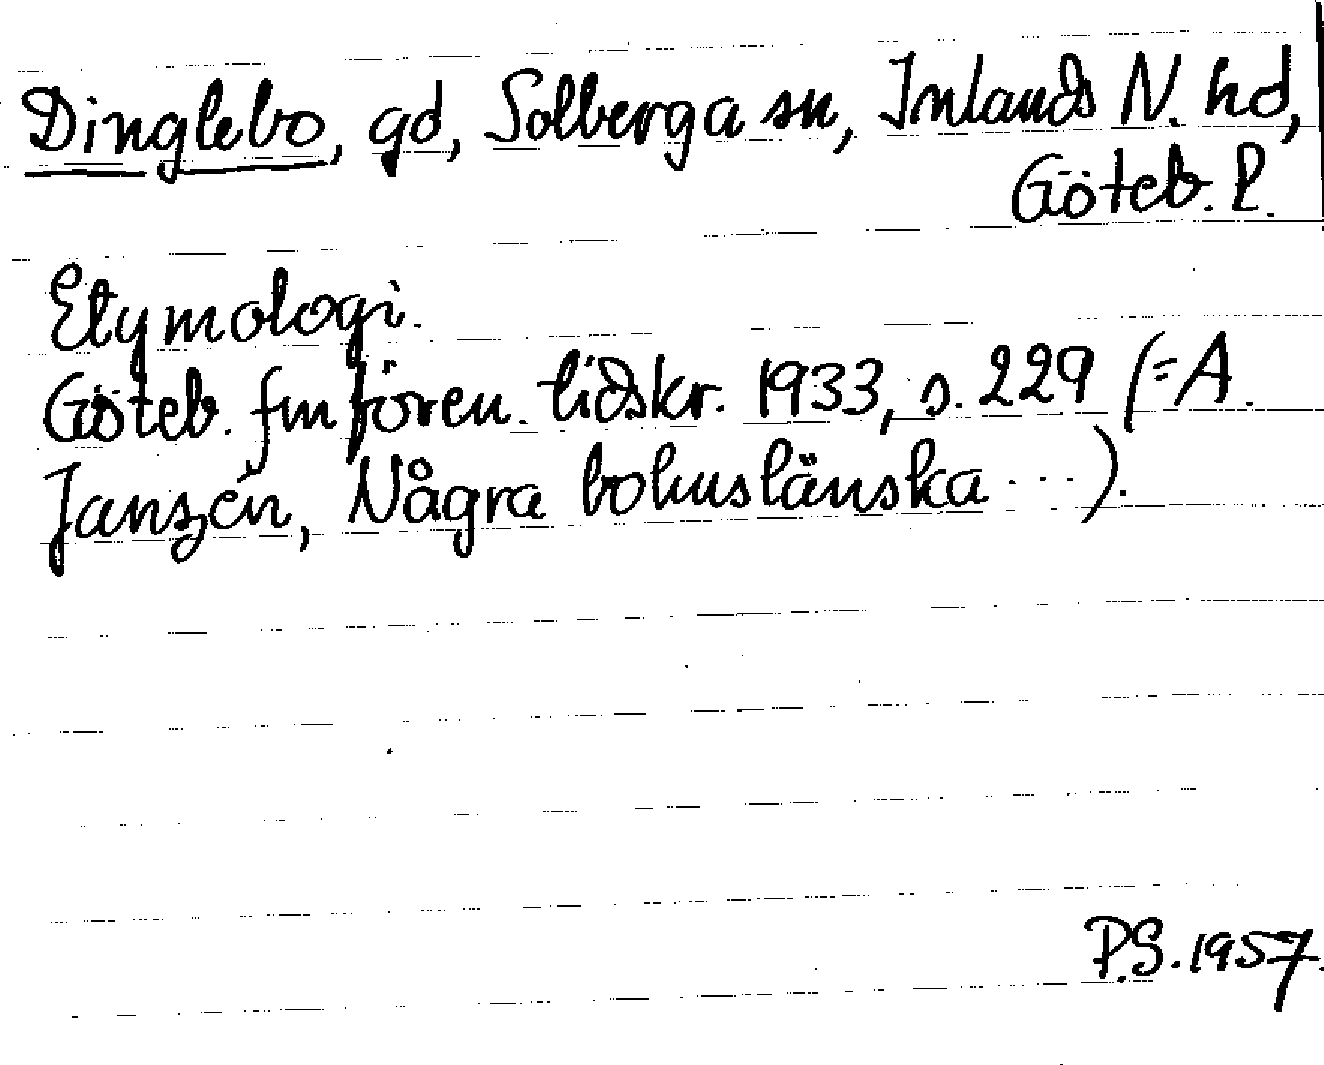 Dinglebo, gd, Solberga sn, Inlands N. hd,
Göteb. l.
Etymologi.
Göteb. fm fören. tidskr. 1933, s. 229 (= A.
Janzén, Några bohuslänska ...).
P.S. 1957.